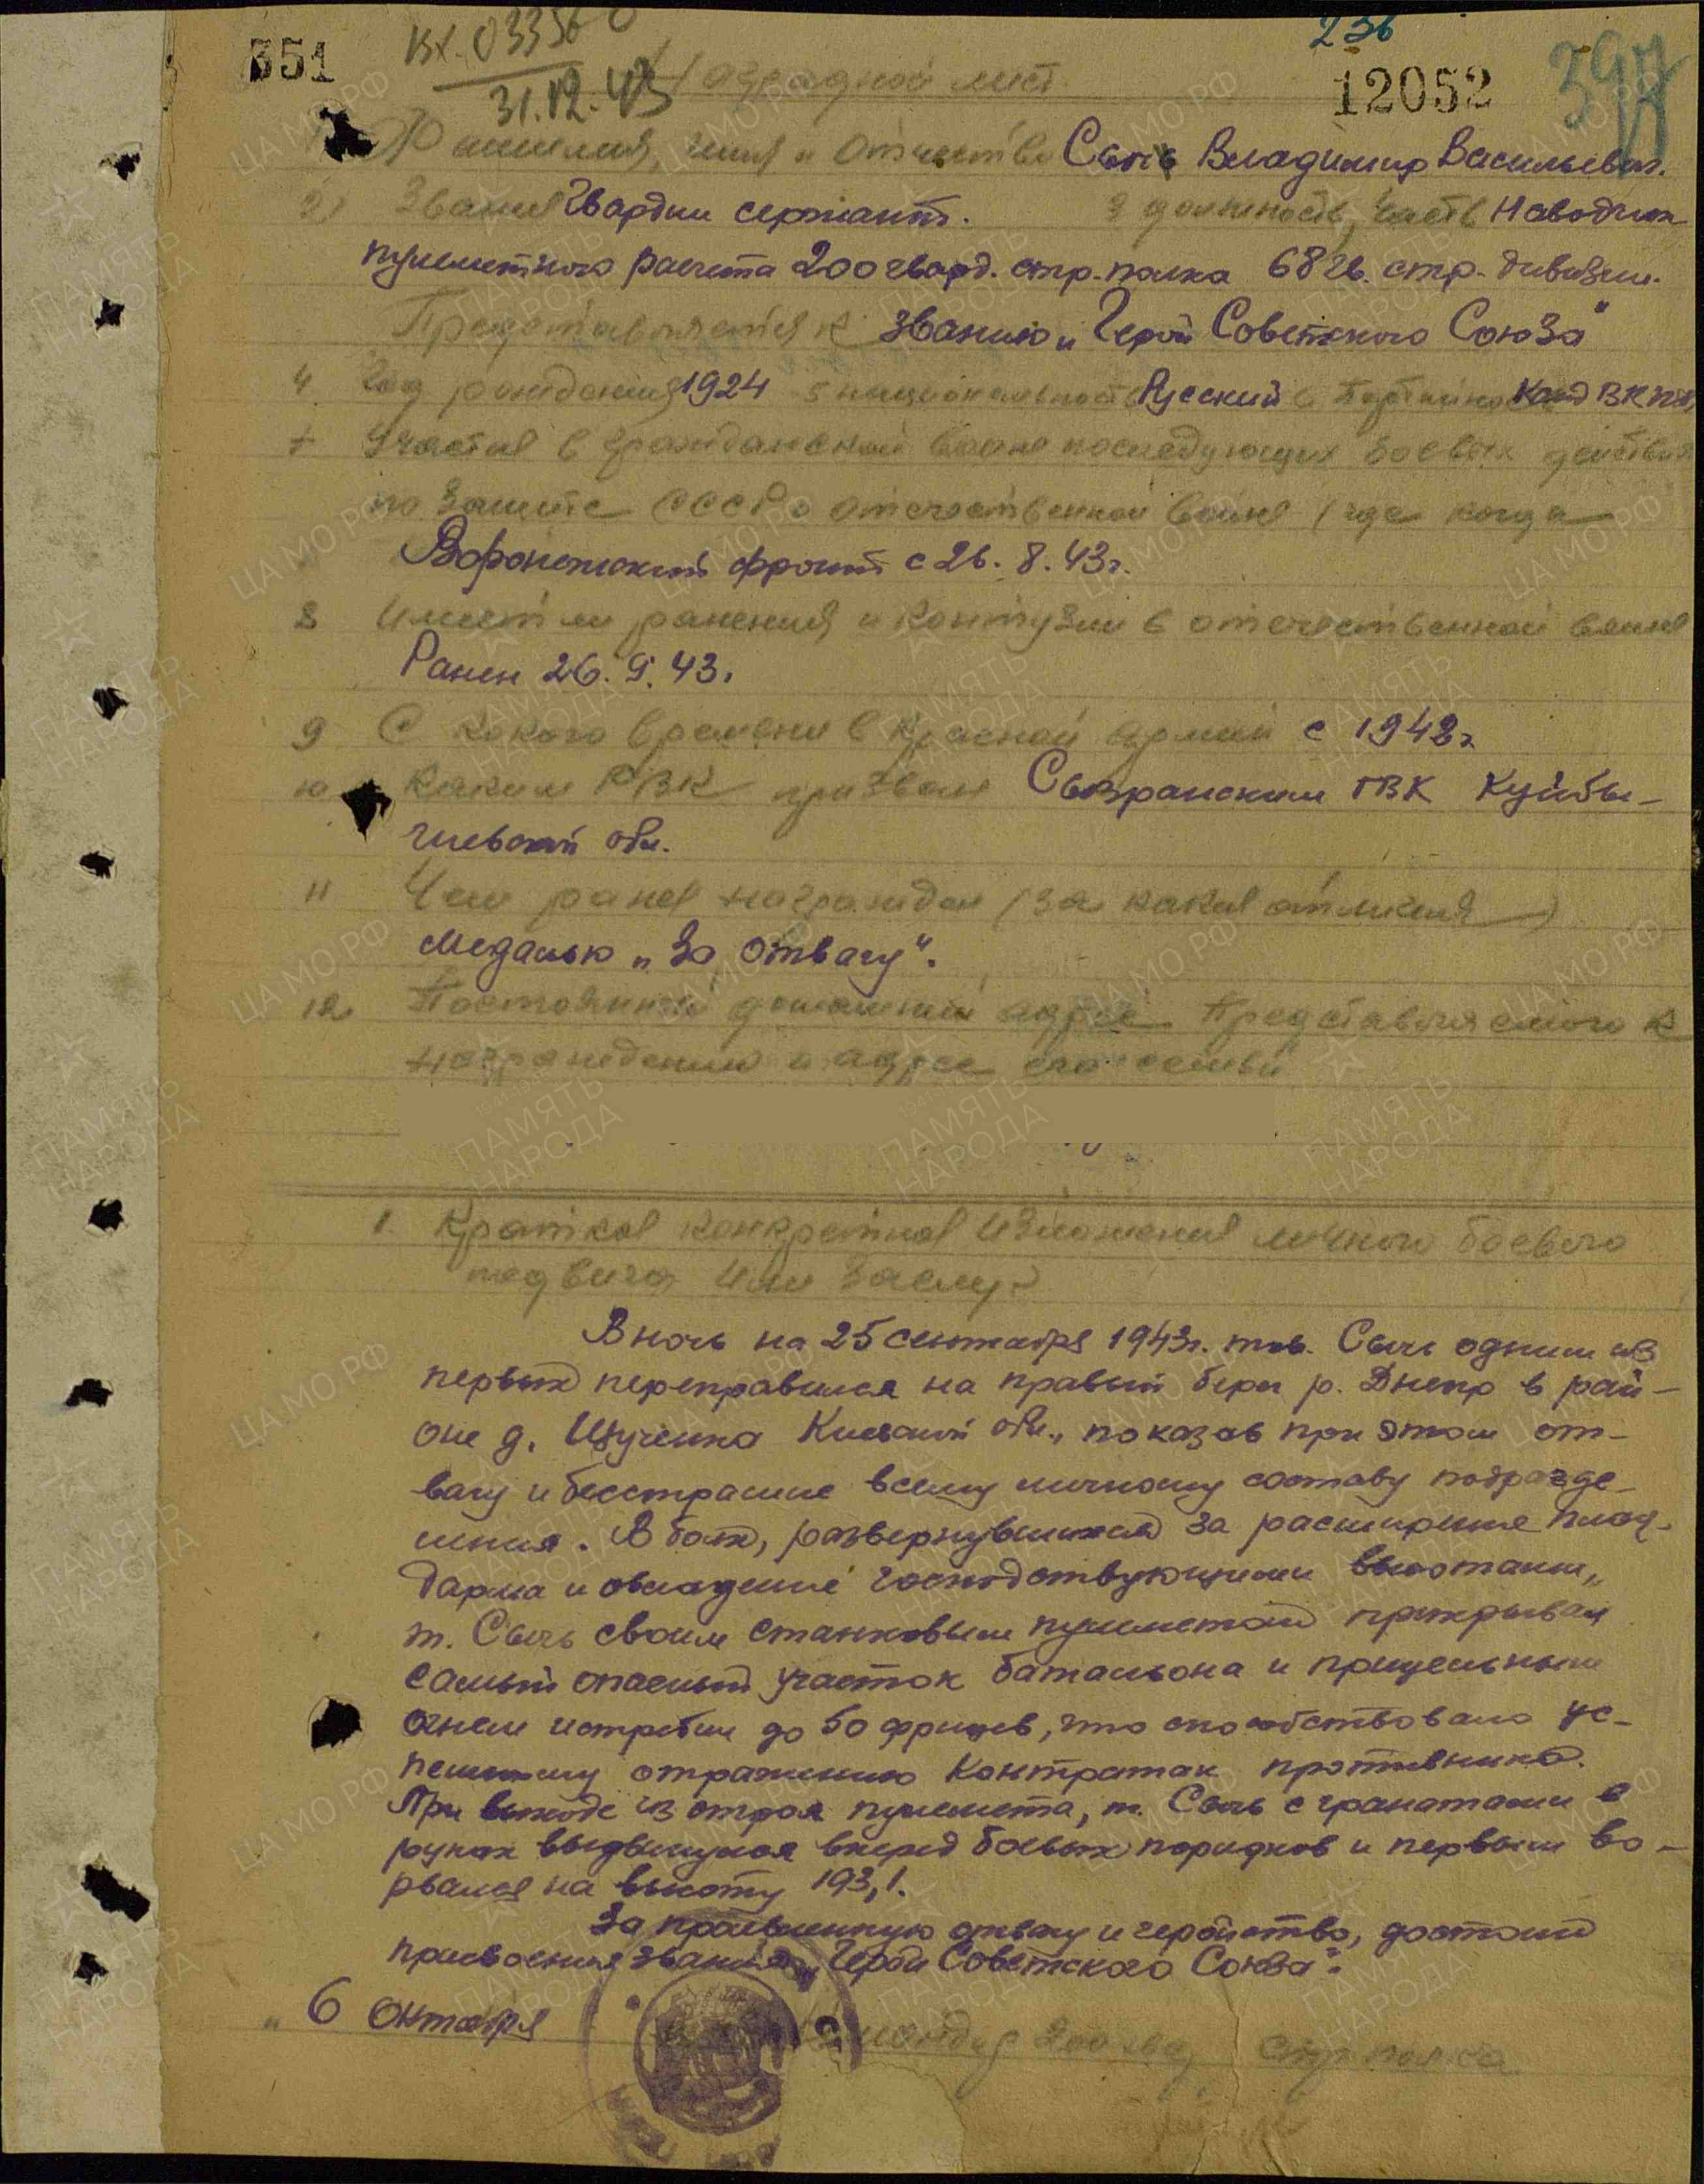 351
Вх. 03356
31.12.43
236
12052
397
Наградной лист
Фамилия, имя и Отчество Сыч Владимир Васильевич.
2) Звание Гвардии сержант. 3 должность, часть Наводчик
пулеметного расчета 200 гвард. стр. полка 68 гв. стр. дивизии.
Представляется к званию „Герой Советского Союза"
4 Год рождения 1924 5 национальность Русский 6 Партийность Канд ВКП(б)
7 Участие в гражданской войне последующих боевых действиях
по защите СССР и отечественной войне (где когда
Воронежский фронт с 26. 8. 43г.
8 Имеет ли ранения и контузии в отечественной войне
Ранен 26. 9. 43.
9 С какого времени в Красной армии с 1942г
10 Каким РВК призван Сызранским ГВК Куйбы-
шевской обл.
11 Чем ранее награжден (за какие отличия)
Медалью „За Отвагу".
12 Постоянный домашний адрес Представляемого к
награждению и адрес его семьи
1. Краткое конкретное изложение личного боевого
подвига или заслуг
В ночь на 25 сентября 1943г. тов. Сыч одним из
первых переправился на правый берег р. Днепр в рай-
оне д. Щученка Киевской обл., показав при этом от-
вагу и бесстрашие всему личному составу подразде-
ления. В боях, развернувшихся за расширение плац-
дарма и овладение господствующими высотами,
т. Сыч своим станковым пулеметом прикрывал
самый опасный участок батальона и прицельным
огнем истребил до 50 фрицев, что способствовало ус-
пешному отражению контратак противника.
При выходе из строя пулемета, т. Сыч с гранатами в
руках выдвинулся вперед боевых порядков и первым во-
рвался на высоту 193,1.
За проявленную отвагу и геройство, достоин
присвоения звания „Герой Советского Союза".
„6 Октября
Командир 200 гвард стр полка